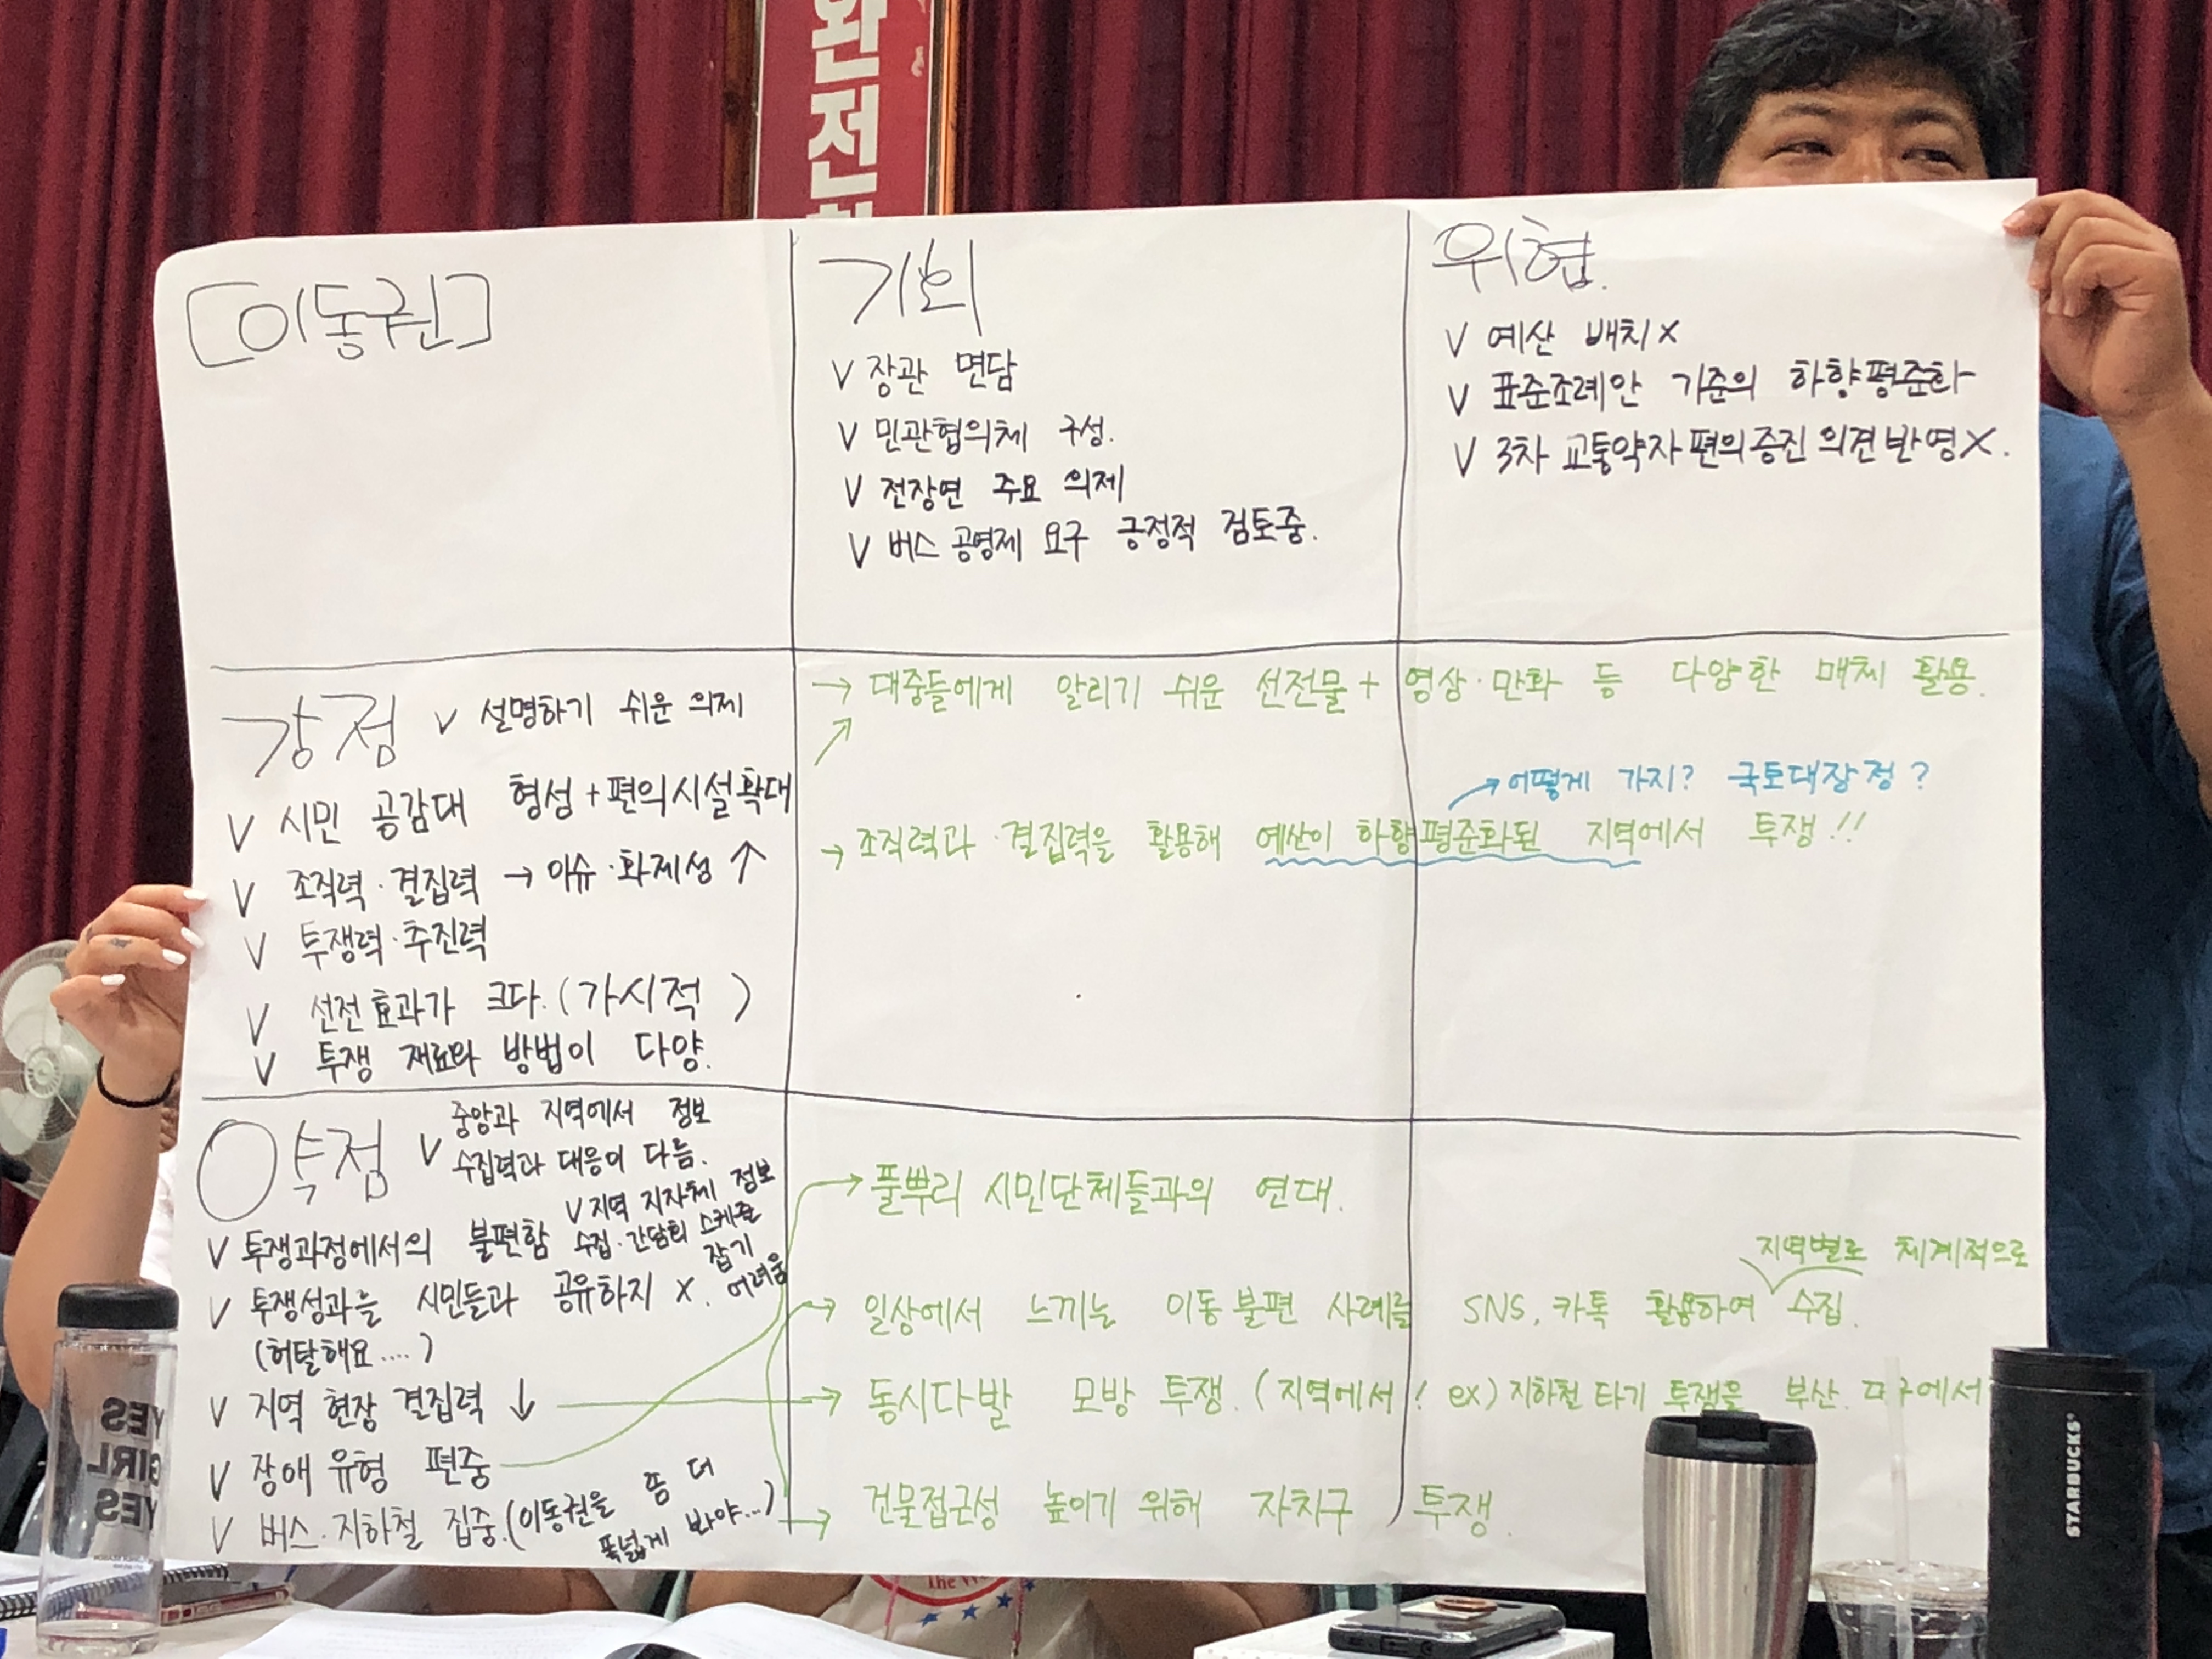 완전
[이동권]
기회
V 장관 면담
V 민관협의체 구성.
V 전장연 주요 의제
V 버스 공영제 요구 긍정적 검토중.
위협.
V 예산 배치 X
V 표준조례안 기준의 하향평준화
V 3차 교통약자 편의증진 의견반영 X.
강점
V 설명하기 쉬운 의제
V 시민 공감대 형성 + 편의시설확대
V 조직력·결집력 → 이슈·화제성 ↑
V 투쟁력·추진력
V 선전효과가 크다. (가시적 )
V 투쟁 재료와 방법이 다양.
→ 대중들에게 알리기 쉬운 선전물 + 영상·만화 등 다양한 매체 활용.
→ 어떻게 가지? 국토대장정?
→ 조직력과·결집력을 활용해 예산이 하향평준화된 지역에서 투쟁!!
약점
V 중앙과 지역에서 정보
수집력과 대응이 다름.
V 지역 지자체 정보
수집·간담회 스케쥴
잡기
어려움
V 투쟁과정에서의 불편함
V 투쟁성과를 시민들과 공유하지 X.
(허탈해요....)
V 지역 현장 결집력 ↓
V 장애 유형 편중
V 버스·지하철 집중. (이동권을 쫌 더
폭넓게 봐야...)
→ 풀뿌리 시민단체들과의 연대.
지역별로 체계적으로
→ 일상에서 느끼는 이동 불편 사례를 SNS, 카톡 활용하여 수집.
→ 동시다발 모방 투쟁. (지역에서! ex) 지하철 타기 투쟁을 부산. 대구에서
→ 건물접근성 높이기 위해 자치구 투쟁.
YES
GIRL
YES
The
STARBUCKS